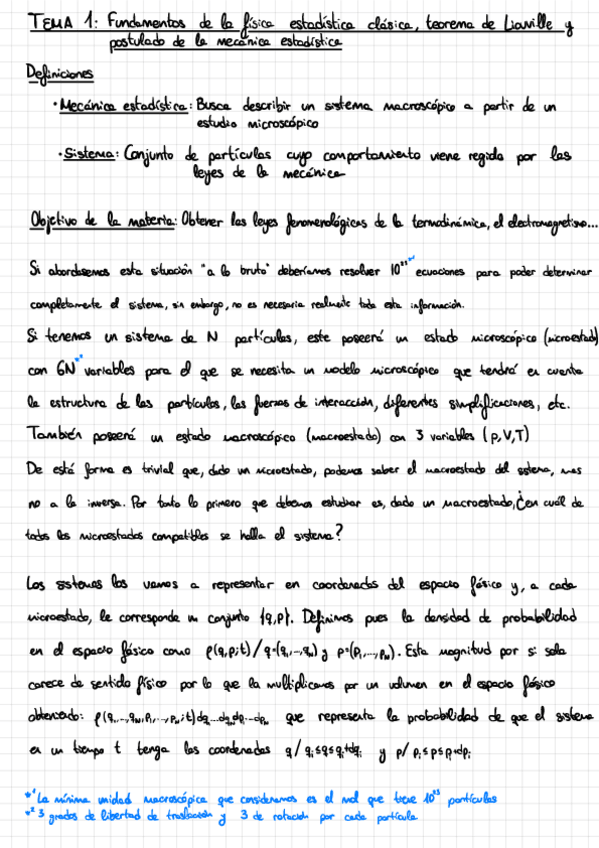 TEMA 1: Fundamentos de la física estadística clásica, teorema de Liouville y
postulado de la mecánica estadística
Definiciones
· Mecánica estadística: Busca describir un sistema macroscópico a partir de un
estudio microscópico
· Sistema: Conjunto de partículas cuyo comportamiento viene regido por las
leyes de la mecánica
Objetivo de la materia: Obtener las leyes fenomenológicas de la termodinámica, el electromagnetismo...
Si abordásemos esta situación "a lo bruto" deberíamos resolver 10²³ *¹ ecuaciones para poder determinar
completamente el sistema, sin embargo, no es necesaria realmente toda esta información.
Si tenemos un sistema de N partículas, este poseerá un estado microscópico (microestado)
con 6N *² variables para el que se necesita un modelo microscópico que tendrá en cuenta
la estructura de las partículas, las fuerzas de interacción, diferentes simplificaciones, etc.
También poseerá un estado macroscópico (macroestado) con 3 variables (p,V,T)
De esta forma es trivial que, dado un microestado, podemos saber el macroestado del sistema, mas
no a la inversa. Por tanto lo primero que debemos estudiar es, dado un macroestado, ¿en cuál de
todos los microestados compatibles se halla el sistema?
Los sistemas los vamos a representar en coordenadas del espacio fásico y, a cada
microestado, le corresponde un conjunto {q,p}. Definimos pues la densidad de probabilidad
en el espacio fásico como ρ(q,p;t) / q=(q₁,...,qₙ) y p=(p₁,...,pₙ). Esta magnitud por si sola
carece de sentido físico por lo que la multiplicamos por un volumen en el espacio fásico
obteniendo: ρ(q₁,...,qₙ,p₁,...,pₙ;t)dq₁...dqₙdp₁...dpₙ que representa la probabilidad de que el sistema
en un tiempo t tenga las coordenadas q / qᵢ≤q≤qᵢ+dqᵢ y p / pᵢ≤p≤pᵢ+dpᵢ
*¹ La mínima unidad macroscópica que consideramos es el mol que tiene 10²³ partículas
*² 3 grados de libertad de traslación y 3 de rotación por cada partícula